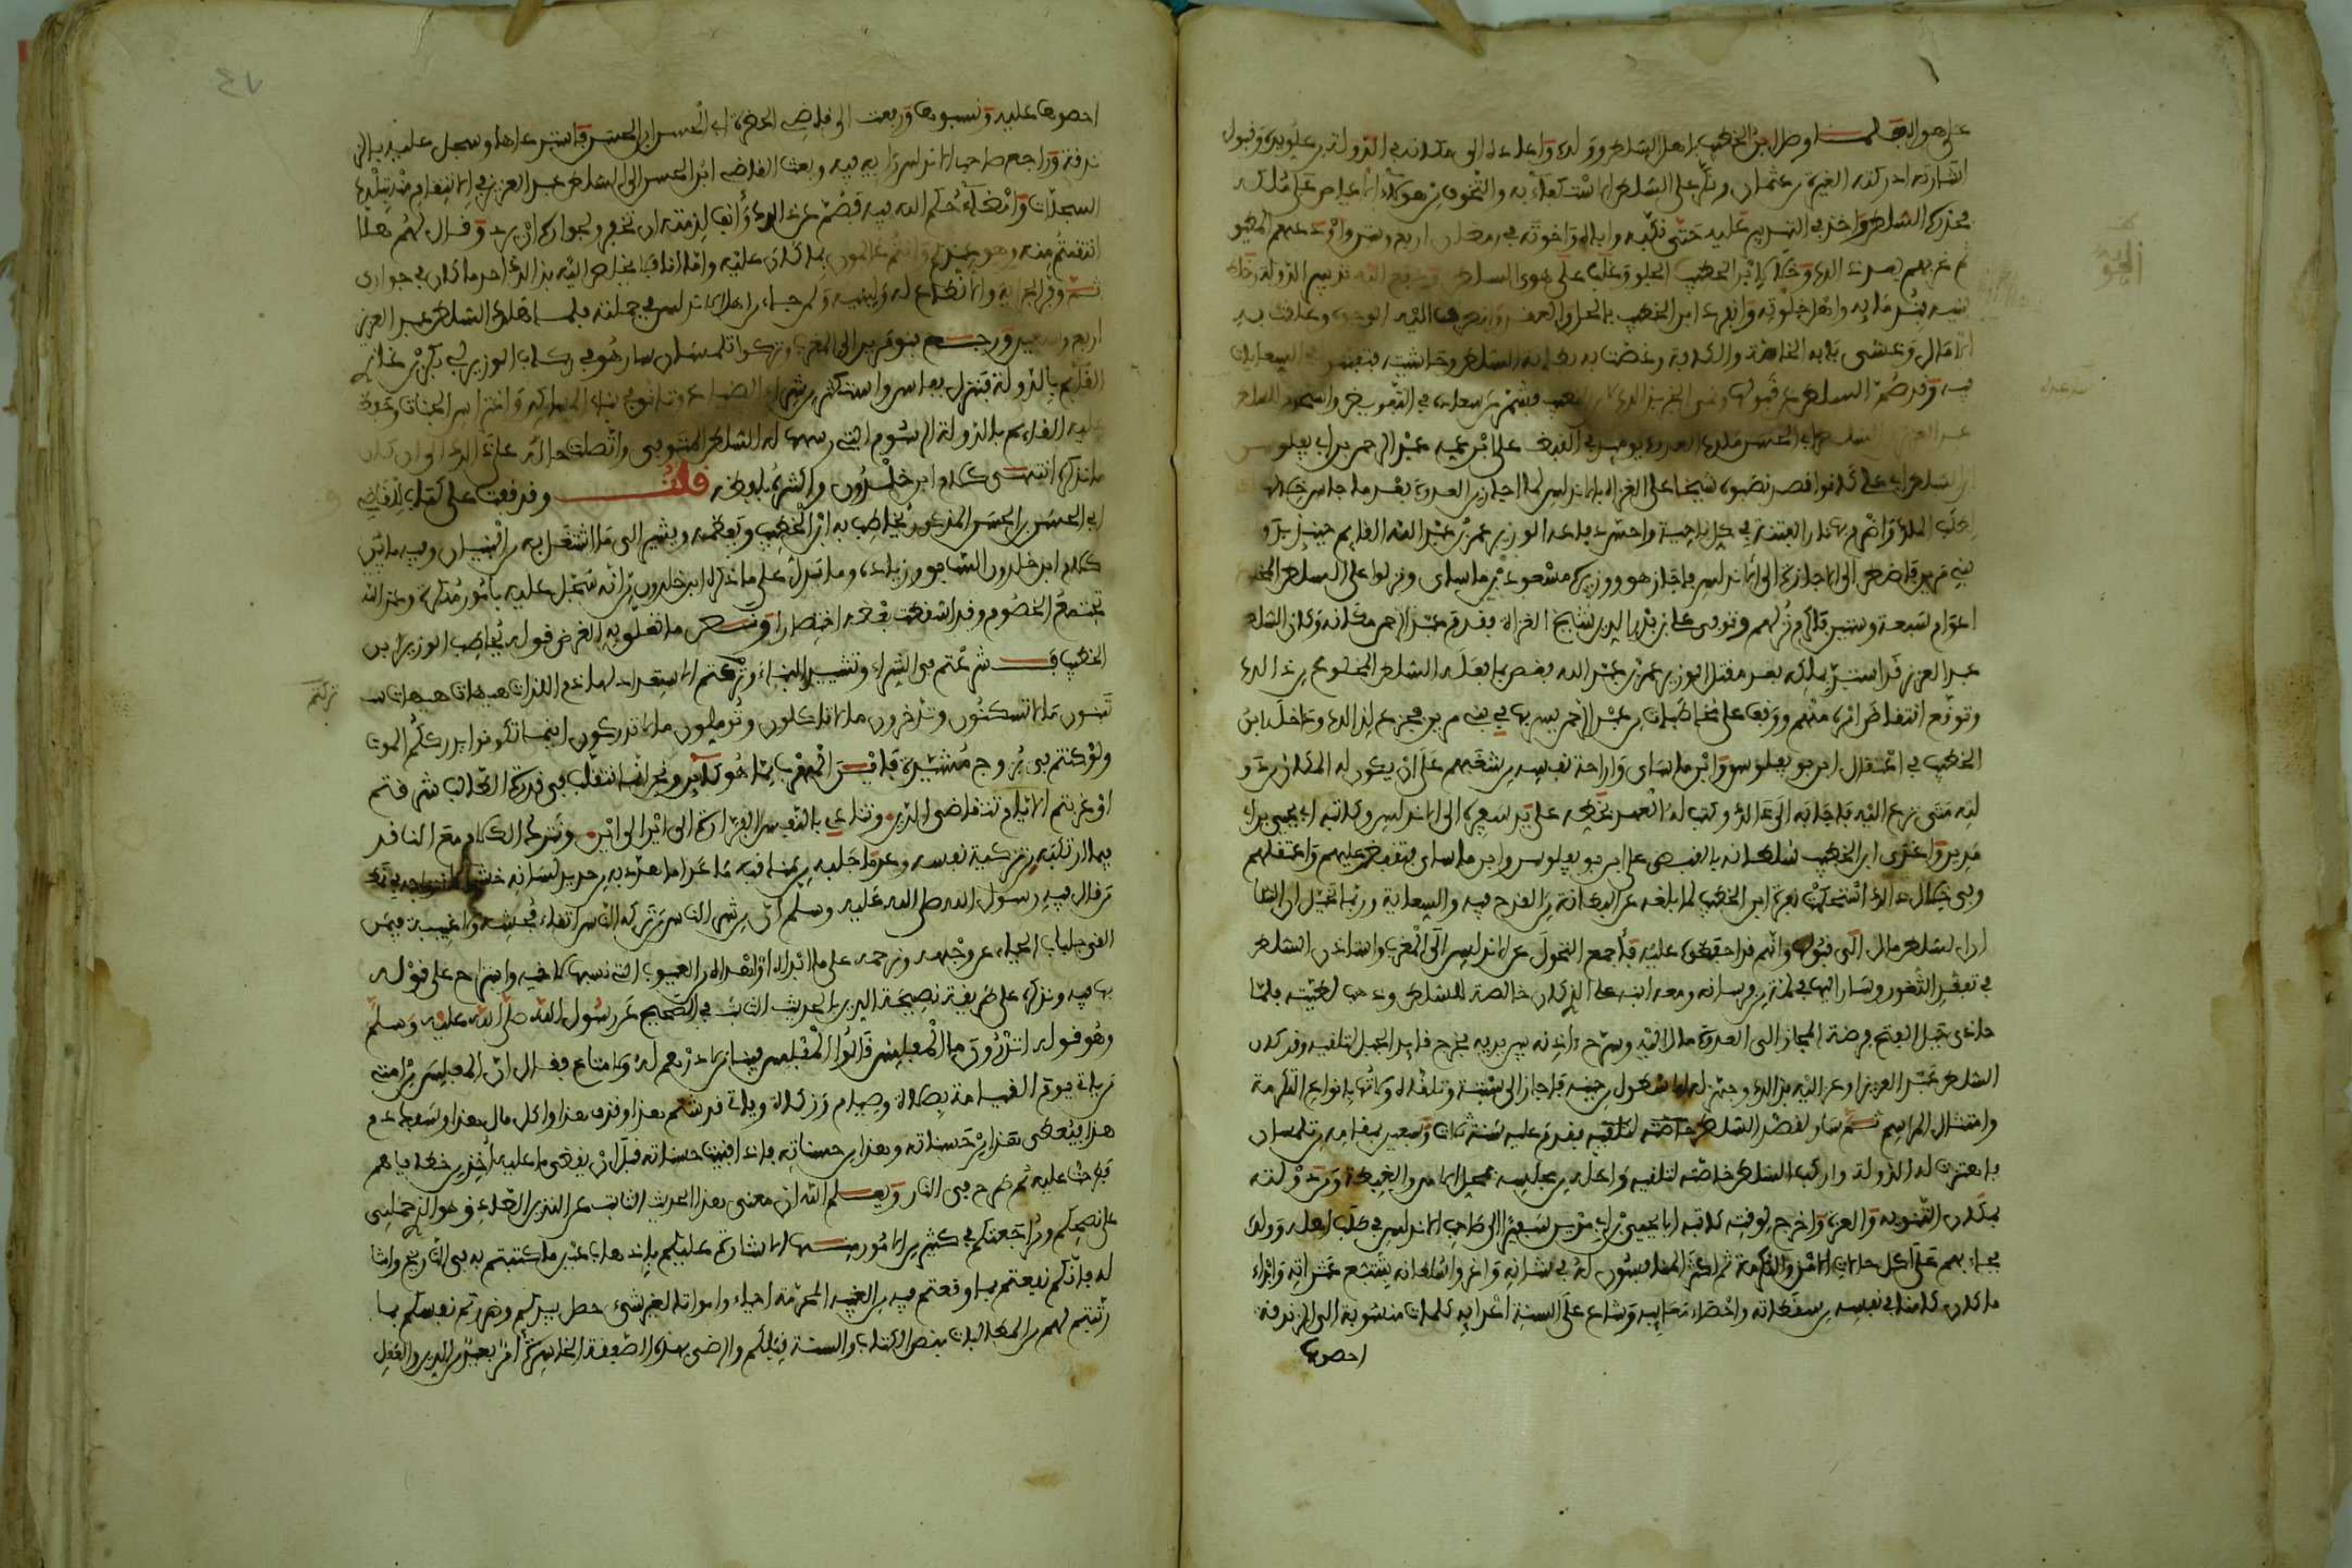 على هواه ولما وصل ابن الخطيب باهل السلطن وولده واعاده الى مكانه في الدولة من علو يده وقبول
اشارته ادركته الغيرة من عثمان ونكر على السلطن الاستكفاء به والتخوف من هولاء الاعياص على ملكه
فحذره السلطن واخذ في التدبير عليه حتى نكبه واباه واخوته في رمضان اربع وستين واودعهم المطبق
ثم غربهم بعد ذلك وخلا لابن الخطيب الجو وغلب على هوى السلطن ودفع اليه تدبير الدولة وخلط
بنيه بندمائه واهل خلوته وانفرد ابن الخطيب بالحل والعقد وانصرفت اليه الوجوه وعلقت به
الامال وغشي بابه الخاصة والكافة وغصت به بطانة السلطن وحاشيته فتفننوا في السعايات
فيه وقد صم السلطن عن قبولها ونمي الخبر بذلك الى ابن الخطيب فشمر عن ساعده في التقويض واستخدم للسلطن
عبد العزيز ابن السلطن ابي الحسن ملك العدوة يومئذ في القبض على ابن عمه عبد الرحمن بن ابي يفلوسن
ابن السلطن ابي علي كانوا قد نصبوه شيخا على الغزاة بالاندلس لما اجاز من العدوة بعد ما جاس خلالها
لطلب الملك واضرم بها نار الفتنة في كل ناحية واحسن دفاعه الوزير عمر بن عبد الله القايم حينيذ بدولة
بني مرين فاضطر الى الاجازة الى الاندلس فاجاز هو ووزيره مسعود بن ماساي ونزلوا على السلطن المخلوع
اعوام سبعة وستين فاكرم نزلهم وتوفي علي بن بدر الدين شيخ الغزاة فقدم عبد الرحمن مكانه وكان السلطن
عبد العزيز قد استبد بملكه بعد مقتل الوزير عمر بن عبد الله فغص بما فعله السلطن المخلوع من ذلك
وتوقع انتقاض امره منهم ووقف على مخاطبات من عبد الرحمن يسر بها في بني مرين فجزع لذلك وداخله ابن
الخطيب في اعتقال ابن ابو يفلوسن وابن ماساي واراحة نفسه من شغبهم على ان يكون له المكان من دو
لته متى نزع اليه فاجابه الى ذلك وكتب له العهد بخطه على يد سفيره الى الاندلس وكاتبه ابي يحيى بن ابي
مدين واغرى ابن الخطيب سلطانه بالقبض على ابن ابو يفلوسن وابن ماساي فتقبض عليهم واعتقلهم
وفي خلال ذلك استحكمت نفرة ابن الخطيب لما بلغه عن البطانة من القدح فيه والسعاية وربما تخيل ان السلطا
ان السلطن مال الى قبولها وانهم قد احفظوه عليه فاجمع التحول عن الاندلس الى المغرب واستاذن السلطن
في تفقد الثغور وسار اليها في لمة من فرسانه ومعه ابنه علي الذي كان خالصة للسلطن وذهب لطيته فلما
حاذى جبل الفتح فرضة المجاز الى العدوة مال اليه وسرح اذنه بين يديه فخرج قايد الجبل لتلقيه وقد كان
السلطن عبد العزيز اوعز اليه بذلك وجهز له الاسطول من حينه فاجاز الى سبتة وتلقاه ولاتها بانواع التكرمة
وامتثال المراسم ثم سار لقصد السلطن فقدم عليه سنة ثلاث وسبعين بمقامه من تلمسان
فاهتزت له الدولة واركب السلطن خاصته لتلقيه واحله من مجلسه بمحل الامن والغبطة ومن دولته
بمكان التنويه والعز واخرج لوقته كاتبه ابا يحيى بن ابي مدين سفيرا الى صاحب الاندلس في طلب اهله وولده
فجاء بهم على اكمل حالات الامن والتكرمة ثم اكثر المنافسون له في شانه واغروا سلطانه بتتبع عثراته وابداء
ما كان كامنا في نفسه من سقطاته واحصاء معايبه وشاع على السنة اعدائه كلمات منسوبة الى الزندقة
احصوها
احصوها عليه ونسبوها ورفعت الى قاضي الحضرة ابي الحسن ابن الحسن فاسترعاها وسجل عليه بالز
ندقة وراجع صاحب الاندلس رايه فيه وبعث القاضي ابن الحسن الى السلطن عبد العزيز في الانتقام منه بتلك
السجلات وامضاء حكم الله فيه فصم عن ذلك وانف لذمته ان تخفر ولجواره ان يرد وقال لهم هلا
انتقمتم منه وهو عندكم وانتم عالمون بما كان عليه واما انا فلا يخلص اليه بذلك احد ما كان في جواري
ثم وفر الجراية والاقطاع له ولبنيه ولمن جاء من اهل الاندلس في جملته فلما هلك السلطن عبد العزيز
اربع وسبعين ورجع بنو مرين الى المغرب وتركوا تلمسان سار هو في ركاب الوزير ابي بكر بن غازي
القايم بالدولة فنزل بفاس واستكثر من شراء الضياع وتانق في بناء المساكن واغتراس الجنات وحفظ
عليه القايم بالدولة الرسوم التي رسمها له السلطن المتوفى واتصلت حاله على ذلك الى ان كان
ما نذكره انتهى كلام ابن خلدون واكثره بلفظه قلت وقد وقفت على كتاب للقاضي
ابي الحسن بن الحسن المذكور يخاطب به ابن الخطيب ويعظه ويشير الى ما اشتغل به من البنيان وفيه ما في
كلام ابن خلدون السابق وزيادة وما يدل على ما ذكره ابن خلدون من انه سجل عليه بامور منكرة وعند الله
تجتمع الخصوم وقد اشفعت بعضه اختصارا ونص ما تعلق به الغرض قوله يخاطب الوزير ابن
الخطيب فشرعتم في الشراء وتشييد البناء وتركتم الاستعداد لهاذم اللذات هيهات هيهات
تبنون ما لا تسكنون وتدخرون ما لا تاكلون وتوملون ما لا تدركون اينما تكونوا يدرككم الموت
ولو كنتم في بروج مشيدة فاين المهرب مما هو كاين ونحن انما نتقلب في قدرة الطالب شرقتم
او غربتم الايام تتقاضى الدين وتنادي بالنفس الفرارة الى اين الى اين ونترك الكلام مع الناقد
فيما ارتكبه من تزكية نفسه وعد ما جلبه من مناقبه ما عدا ما هدد به من حديد لسانه خشية
من قال فيه رسول الله صلى الله عليه وسلم ان من شر الناس من تركه الناس اتقاء فحشه ولا غيبة فيمن
القى جلباب الحياء عن وجهه ونرحمه على ما ابداه او اهداه من العيوب التي نسبها لاخيه واستراح على قوله
بها فيه ونذكره على طريقة نصيحة الدين بالحديث الثابت في الصحيح عن رسول الله صلى الله عليه وسلم
وهو قوله اتدرون ما المفلس قالوا المفلس فينا من لا درهم له ولا متاع فقال ان المفلس من امتي
من ياتي يوم القيامة بصلاة وصيام وزكاة وياتي قد شتم هذا وقذف هذا واكل مال هذا وسفك دم
هذا فيعطى هذا من حسناته وهذا من حسناته فاذا فنيت حسناته قبل ان يقضى ما عليه اخذ من خطاياهم
فطرحت عليه ثم طرح في النار ويعلم الله ان معنى هذا الحديث الثابت عن النذير الصادق هو الذي حملني
على نصحكم ومراجعتكم في كثير من الامور منها الاشارة عليكم باذهاب عين ما كتبتم به في التاريخ وامثا
له فانكم نفعتم بما وقعتم فيه من الغيبة المحرمة احياء وامواتا لغير شيء حصل بيدكم وضررتم نفسكم بما
رتبتم لهم من المطالبات بنص الكتاب والسنة قبلكم والرضى بهذه الصفقة الخاسرة امر بعيد من الدين والعقل
تركتم